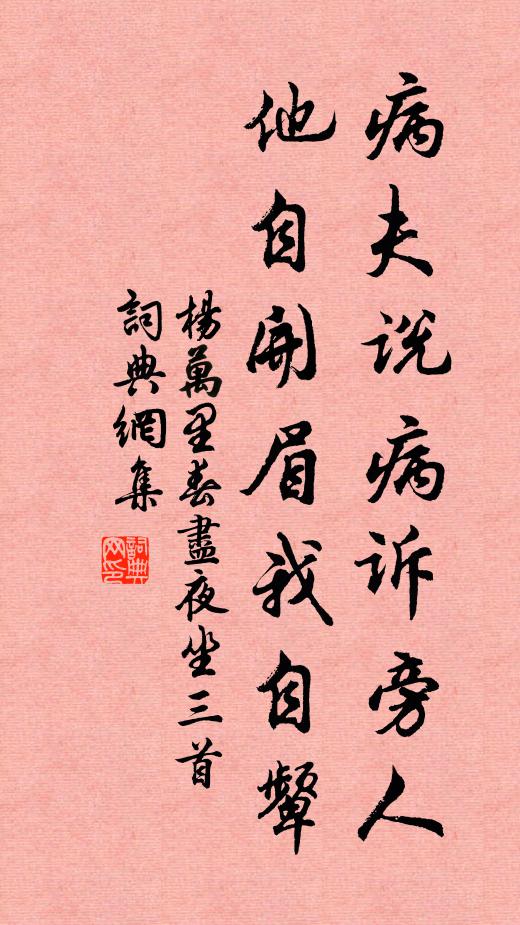 病夫说病诉旁人
他自开眉我自颦
楊萬里春盡夜坐三首
詞典網集
詞典
网印